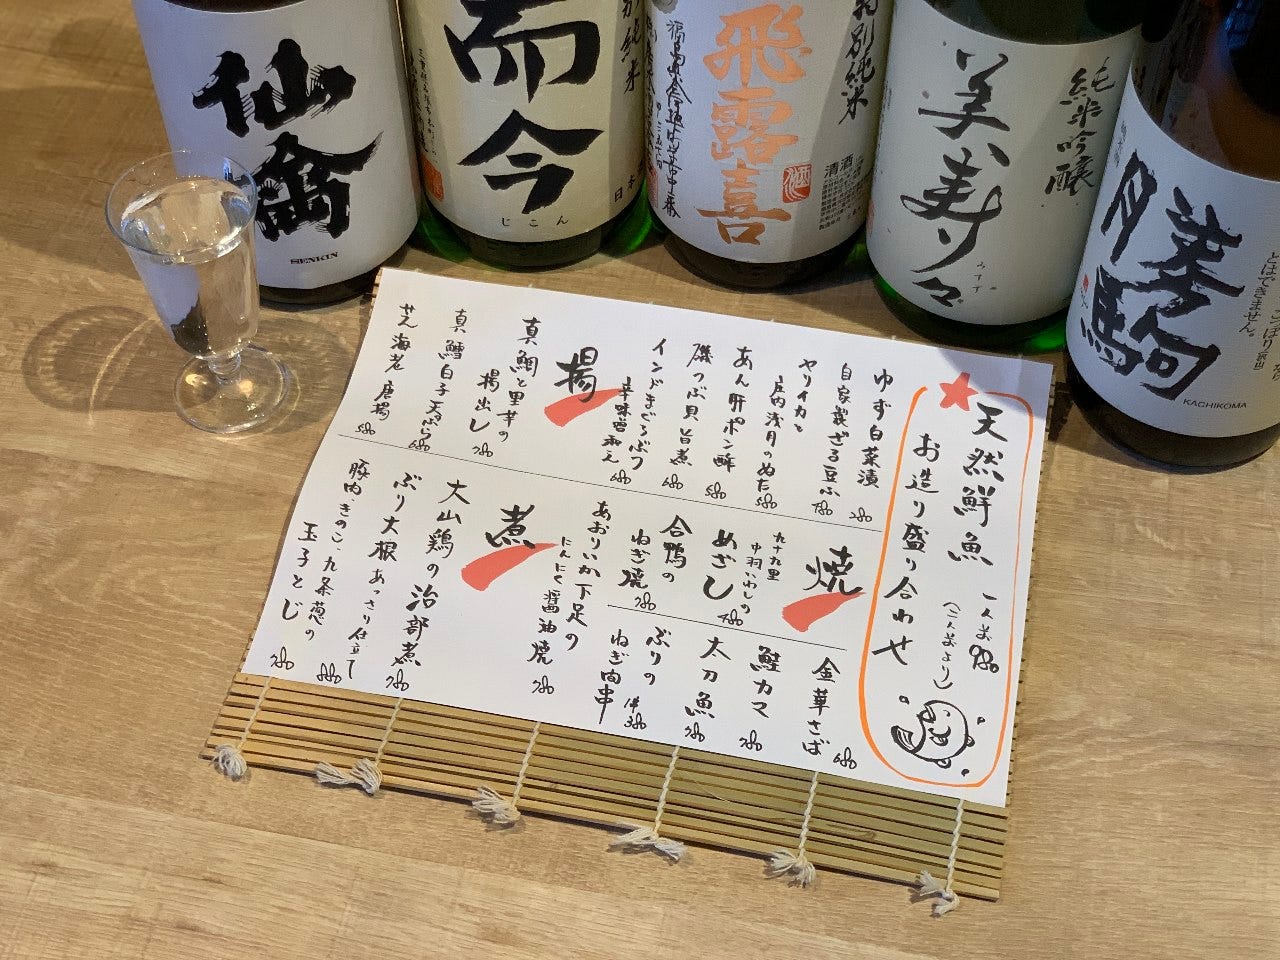 仙禽
SENKIN
而今
じこん
特別純米
日本
飛露喜
特別純米
清酒
美寿々
みすず
純米吟醸
勝駒
KACHIKOMA
とはできません。
天然鮮魚
お造り盛り合わせ
一人前 980
(二人前より)
ゆず白菜漬 280
自家製ざる豆ふ 780
ヤリイカと
庄内浅月のぬた 580
あん肝ポン酢 580
磯つぶ貝旨煮 680
インドまぐろぶつ
辛味噌和え 680
揚
真鯛と里芋の
揚出し 780
真鱈白子天ぷら 680
甘えび
海老唐揚 580
焼
九十九里
中羽いわしの
めざし 480
合鴨の
ねぎ焼 780
あおりいか下足の
にんにく醤油焼 780
金華さば 680
鮭カマ 780
太刀魚 780
ぶりの
ねぎ間串 1本 380
煮
大山鶏の治部煮 780
ぶり大根 あっさり仕立て 880
豚肉、きのこ、九条葱の
玉子とじ 780